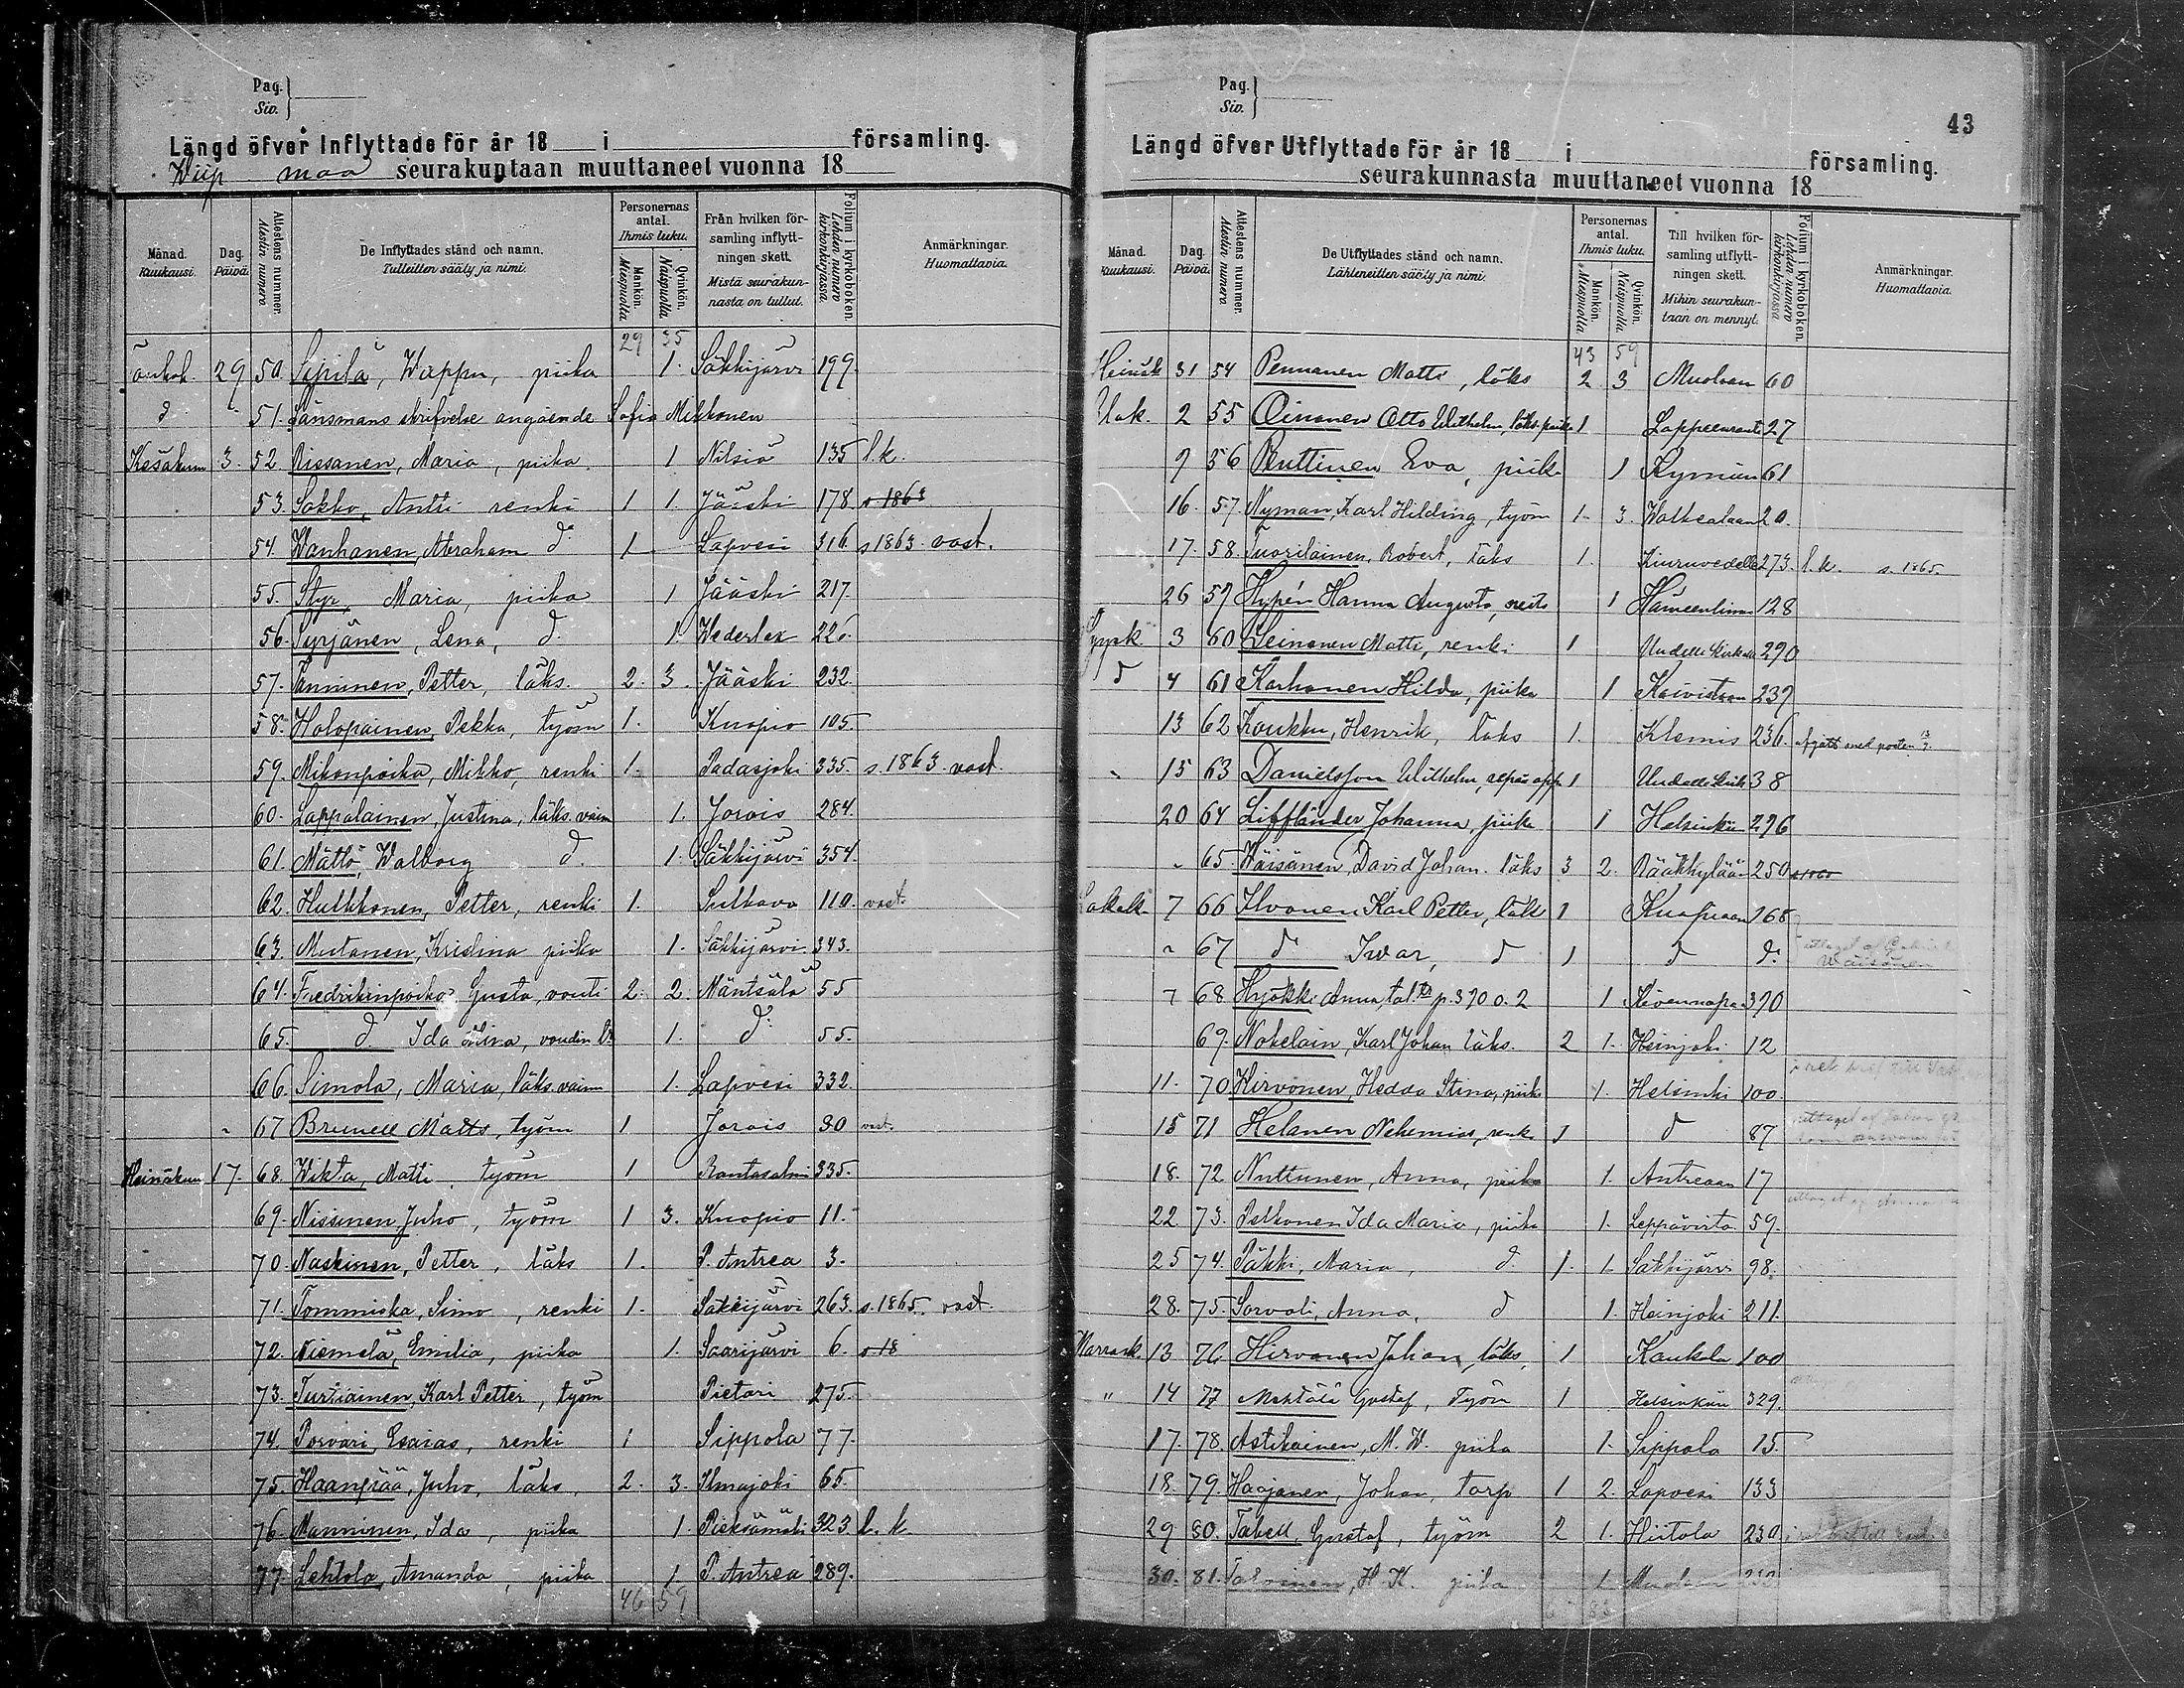 Pag.
Siv.
Längd öfver Inflyttade för år 18 i församling.
Wiip maa seurakuntaan muuttaneet vuonna 18
Månad. Kuukausi.
Dag. Päivä.
Attestens nummer. Alestin numero.
De Inflyttades stånd och namn. Tulleitten sääty ja nimi.
Personernas antal. Ihmis luku.
Mankön. Miespuolia
Qvinkön. Naispuolia.
Från hvilken församling inflyttningen skett. Mistä seurakunnasta on tullut.
Folium i kyrkoboken. Lehden numero kirkonkirjassa.
Anmärkningar. Huomattavia.
29 35
29 50. Sipilä, Wappu, piika 1. Säkkijärvi 199.
d 51. Länsmans skrifvelse angående Sofia Mikkonen
Kesäkuun 3. 52 Rissanen, Maria, piika 1 Nilsiä 135 l.k.
53. Sakko, Antti renki 1 1. Jääski 178 s. 1863
54. Wanhanen, Abraham d:o 1 Lapvesi 316. s 1863 vast.
55. Styr, Maria, piika 1 Jääski 217.
56. Syrjänen, Lena, d. 1. Wederlax 226.
57. Tanninen, Petter, läks. 2. 3. Jääski 232.
58. Holopainen, Pekka, työm 1. Kuopio 105.
59. Mikonpoika, Mikko, renki 1. Padasjoki 335. s. 1863 vast.
60. Lappalainen, Justina, läks. vaim 1. Jorois 284.
61. Mättö, Walborg d. 1. Säkkijärvi 354.
62. Hulkkonen, Petter, renki 1. Sulkava 110. vast.
63. Mutanen, Kristina piika 1. Säkkijärvi 343.
64. Fredrikinpoika Gusta, vouti 2. 2. Mäntsälä 55
65. d. Ida Stina, voudin 1. d:o 55.
66. Simola, Maria, läks. vaim 1. Lapvesi 332.
67 Brunell Matts, työm 1 Jorois 80 vast.
Heinäkuun 17. 68. Wikta, Matti, työm 1 Rantasalmi 335.
69. Nissinen Juho, työm 1 3. Kuopio 11.
70. Naskinen, Petter, läks 1. P. Antrea 3.
71. Tommiska, Simo, renki 1. Säkkijärvi 263. s. 1865. vast.
72. Niemelä, Emilia, piika 1. Saarijärvi 6. s 18
73. Turtiainen, Karl Petter, työm Pietari 275.
74. Porvari, Esaias, renki 1 Sippola 77.
75. Haanpää, Juho, läks. 2. 3. Ilmajoki 65.
76. Manninen, Ida, piika 1 Pieksämäki 323. l. k.
77. Lehtola, Amanda, piika 1 P. Antrea 289.
46 59
Pag.
Siv.
43
Längd öfver Utflyttade för år 18 i församling.
seurakunnasta muuttaneet vuonna 18
Månad. Kuukausi.
Dag. Päivä.
Attestens nummer. Alestin numero
De Utflyttades stånd och namn. Lähteneitten sääty ja nimi.
Personernas antal. Ihmis luku.
Mankön. Miespuolia
Qvinkön. Naispuolia.
Till hvilken församling utflyttningen skett. Mihin seurakuntaan on mennyt.
Folium i kyrkoboken. Lehden numero kirkonkirjassa
Anmärkningar. Huomattavia.
43 59
Heinäk 31 54 Pennanen Matti, läks 2 3 Muolaan 60
2 55 Oinonen Otto Wilhelm, läks. poika 1 Lappeenranta 27
9 56 Ruttinen Eva, piika 1 Kymiin 61
16. 57. Nyman, Karl Hilding, työm 1. 3. Walkealaan 20.
17. 58 Tuorilainen, Robert, läks 1. Kiuruvedelle 273. l.k. s. 1865.
26 59 Hypén Hanna Augusta, neits 1 Hämeenlinna 128
Syysk 3 60 Leinonen Matti, renki 1 Uudelle kirkolle 290
d 4 61 Karhonen Hilda, piika 1 Koivistoon 239
13 62 Koukku, Henrik, läks 1. Klemis 236. afgått med posten
15 63 Danielsson Wilhelm, 1 38
20 64 Liffländer Johanna, piika 1 Helsinkiin 296
65. Wäisänen, David Johan. läks 3 2. Rääkkylään 250
Lokak. 7 66 Ilvonen Karl Petter, läks 1 Kuopioon 168
67 d:o Iwar, d 1 d d:o uttaget af Wäisänen
7 68 Hyökki Anna, p. 370 o. 2 1 Kivennapa 370
69. Nokelain, Karl Johan läks. 2 1. Heinjoki 12
11. 70 Hirvonen, Hedda Stina, piika 1. Helsinki 100.
15 71 Helanen Nehemias, renk 1 d 87 uttaget af Johan
18. 72 Nuttunen, Anna, piika 1. Antreaan 17
22. 73. Pelkonen Ida Maria, piika 1. Leppävirta 59.
25 74. Päkki, Maria, d. 1. 1 Säkkijärvi 98.
28. 75. Sorvali, Anna, d 1. Heinjoki 211.
Marrask. 13 76 Hirvonen Johan, läks, 1 Kaukola 100
" 14 77 Mahtälä Gustaf, Työm 1 Helsinkiin 329.
17. 78. Astikainen, M. W. piika 1. Sippola 15.
18. 79. Haajanen, Johan, torp 1 2. Lapvesi 133
29 80. Tabell, Gustaf, työm 2 1. Hiitola 230.
30. 81. H. K. piika 1